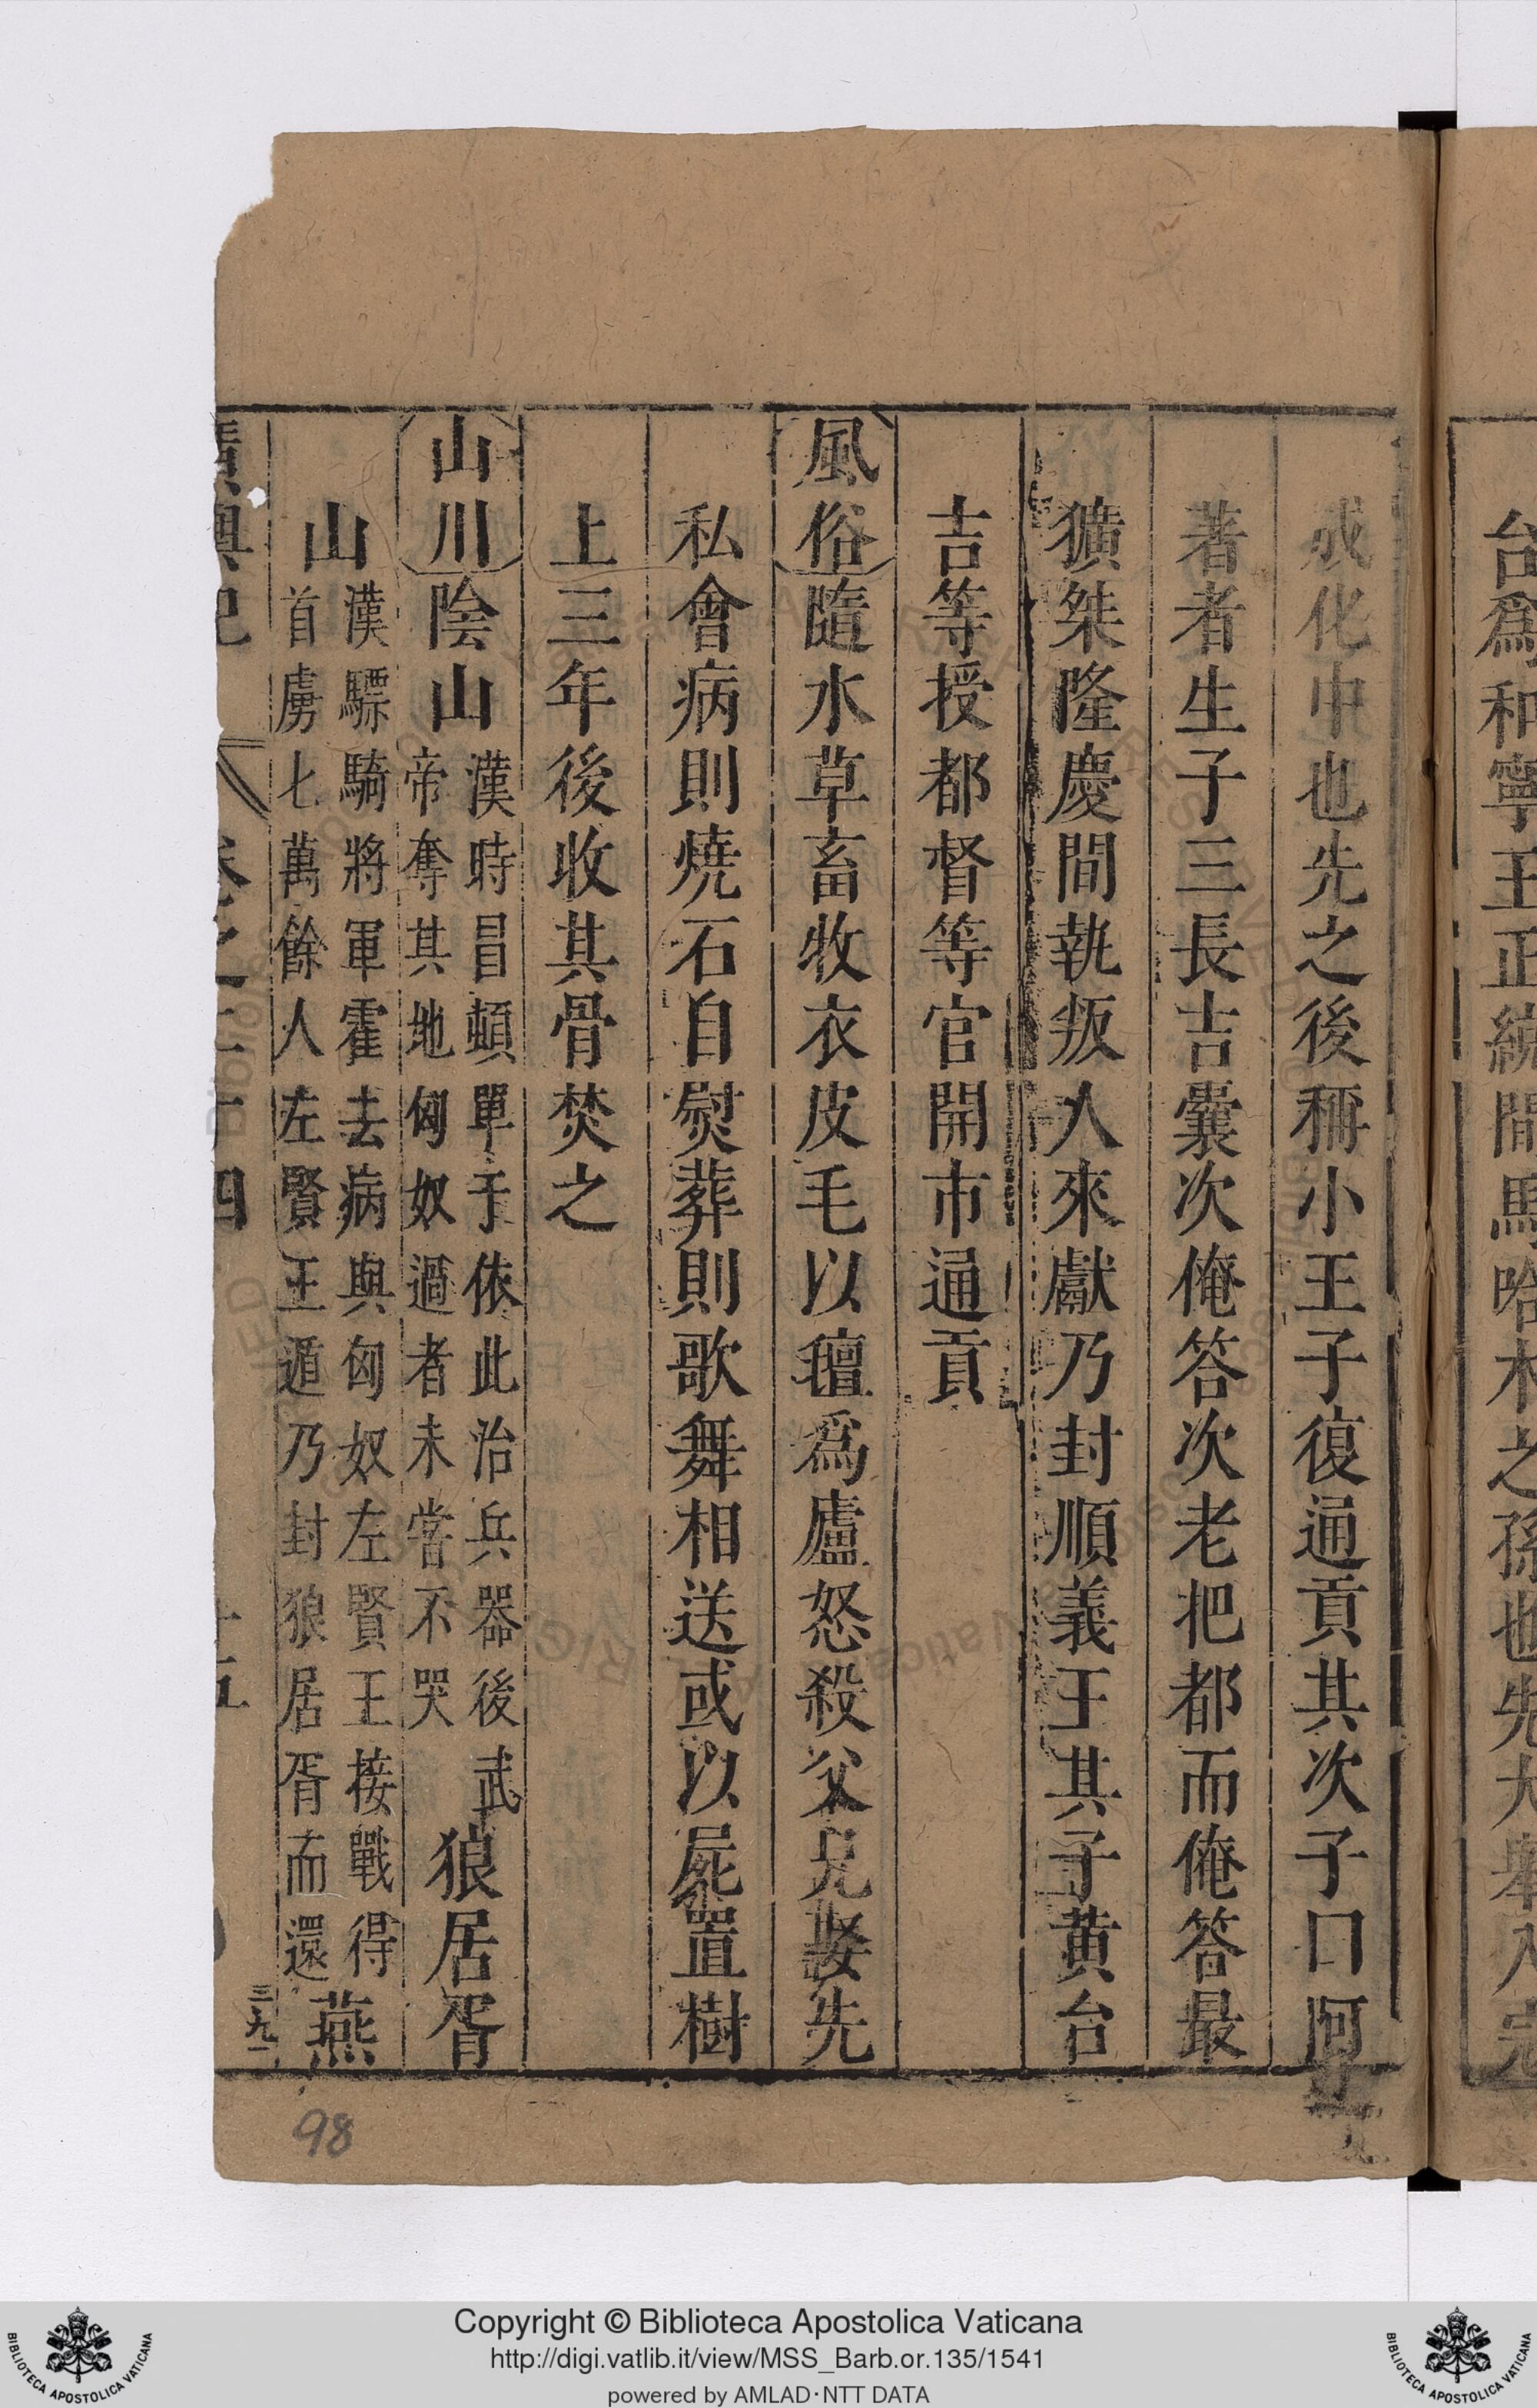 台爲和寧王正統間馬哈木之孫也先大舉入寇
成化中也先之後稱小王子復通貢其次子口阿
著者生子三長吉囊次俺答次老把都而俺答最
獷桀隆慶間執叛人來獻乃封順義王其子黄台
吉等授都督等官開市通貢
風俗隨水草畜牧衣皮毛以氊爲廬怒殺父兄娶先
私會病則燒石自熨葬則歌舞相送或以屍置樹
上三年後收其骨焚之
山川陰山漢時冒頓單于依此治兵器後武
帝奪其地匈奴過者未嘗不哭狼居胥
山漢驃騎將軍霍去病與匈奴左賢王接戰得
首虜七萬餘人左賢王遁乃封狼居胥而還燕
廣輿記 卷之二十四 十五
三九一
98
Copyright © Biblioteca Apostolica Vaticana
http://digi.vatlib.it/view/MSS_Barb.or.135/1541
powered by AMLAD·NTT DATA
BIBLIOTECA APOSTOLICA VATICANA
BIBLIOTECA APOSTOLICA VATICANA